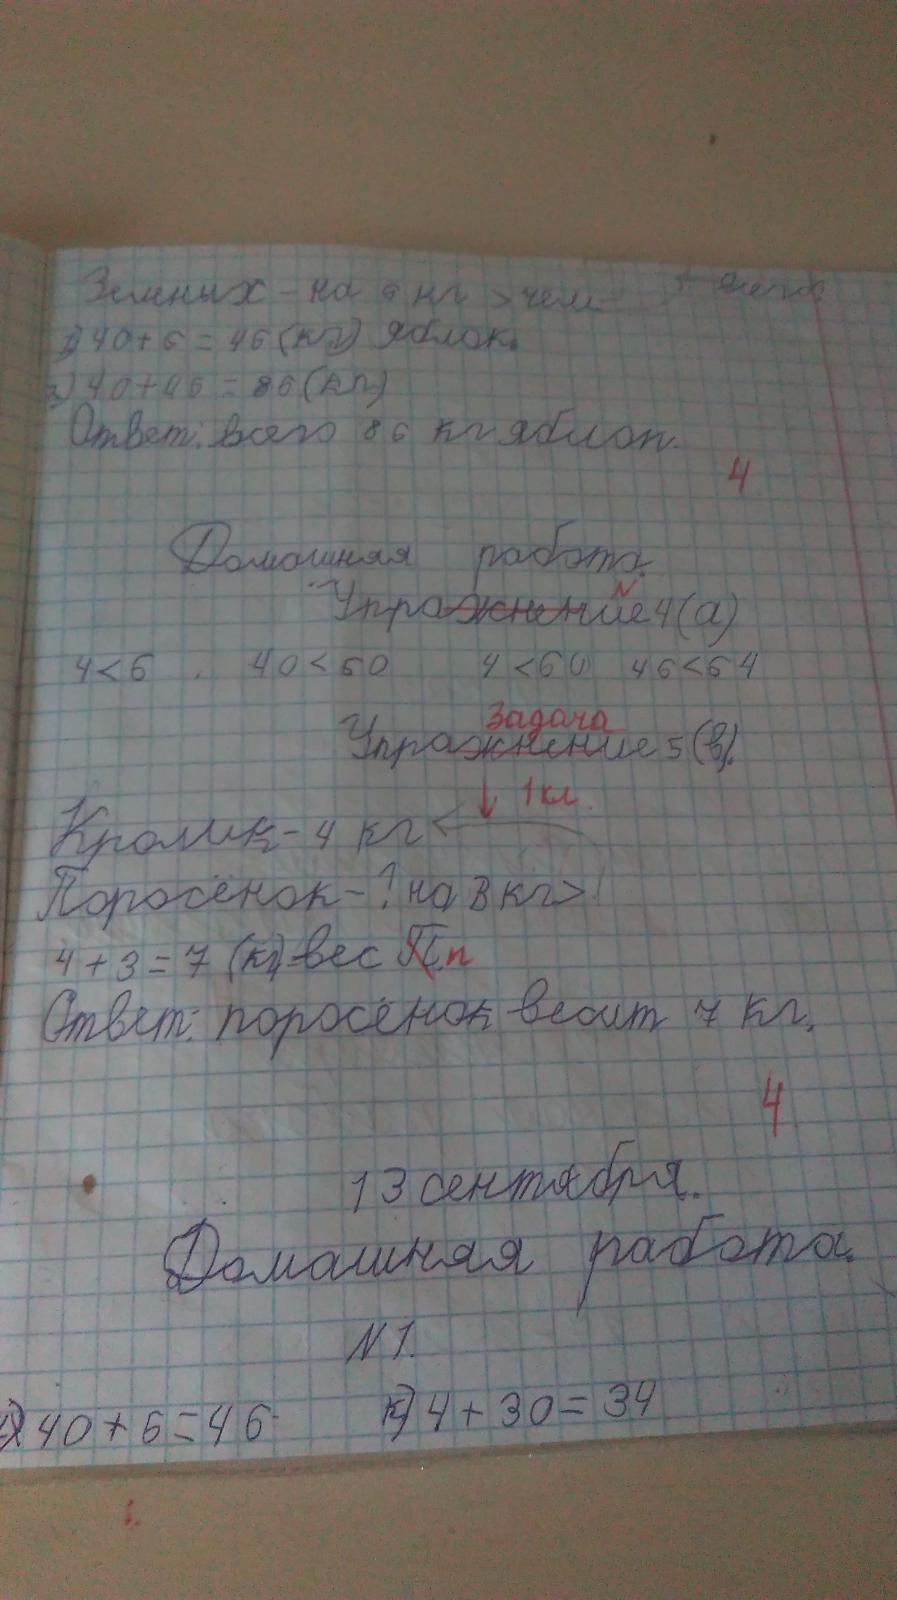 Земных - на 6 кг > чем
1) 40+6=46(кг) яблок.
2) 40+46=86(кг)
Ответ: всего 86 кг яблоп.
4
Домашняя работа.
N
Упражнение 4(а)
4<6 40<60 4<60 46<64
Задача
Упражнение 5(в).
1 кл.
Кролик - 4 кг
Поросёнок - ? на 3 кг >
4+3=7 (кг) - вес П. п
Ответ: поросёнок весит 7 кг.
4
13 сентября.
Домашняя работа.
N 1.
40+6=46 к) 4+30=34